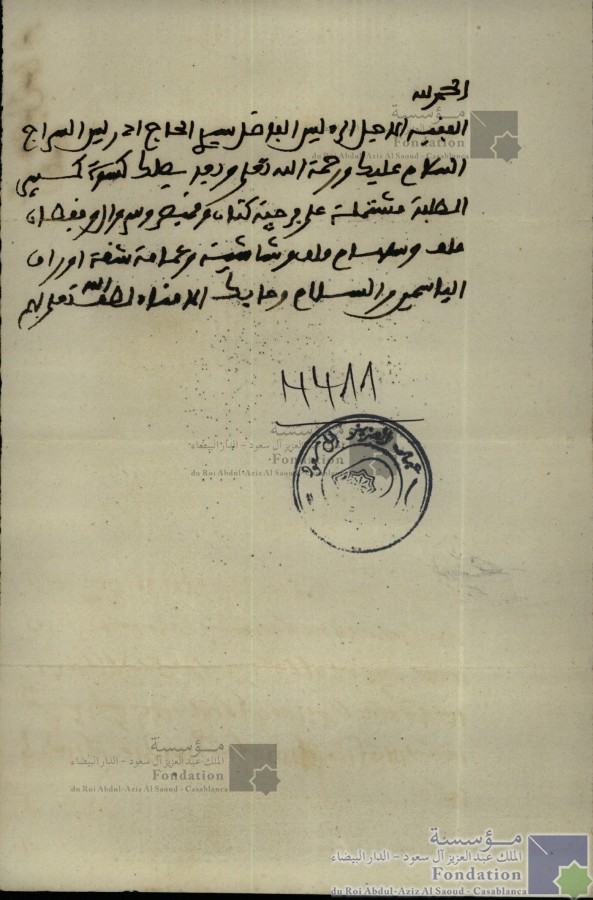 الحمد لله
الفقيه الاجل الرءيس الفاضل سيدي الحاج ادريس السراج
السلام عليك ورحمة الله تعلى وبعد يصلك كسوة كسيبي
الطلبة مشتملة على فرجية كتان وقميص وسروال وقفطان
ملف وسلهام ملف وشاشية وعمامة شقة اوراق
الياسمين والسلام وجابك الامناء لطف الله تعلى بهم
4411
مؤسسة
الملك عبد العزيز آل سعود - الدار البيضاء
Fondation
du Roi Abdul-Aziz Al Saoud - Casablanca
مؤسسة
الملك عبد العزيز آل سعود - الدار البيضاء
Fondation
du Roi Abdul-Aziz Al Saoud - Casablanca
مؤسسة
الملك عبد العزيز آل سعود - الدار البيضاء
Fondation
du Roi Abdul-Aziz Al Saoud - Casablanca
مؤسسة
الملك عبد العزيز آل سعود - الدار البيضاء
Fondation
du Roi Abdul-Aziz Al Saoud - Casablanca